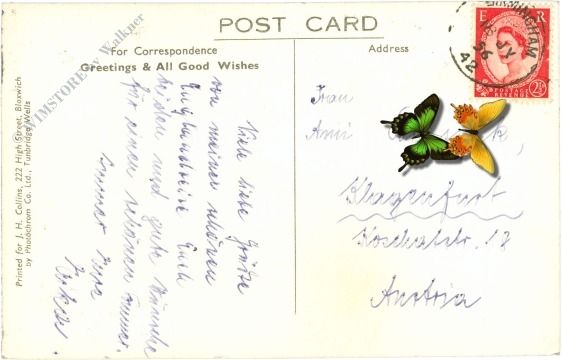 POST CARD
For Correspondence
Greetings & All Good Wishes
Address
Viele liebe Grüße
von meiner schönen
Englandreise Euch
beiden und gute Wünsche
für einen schönen Sommer.
Immer Eure
Frau
Klagenfurt
Koschatstr. 18
Austria
Printed for J. H. Collins, 222 High Street, Bloxwich
by Photochrom Co. Ltd., Tunbridge Wells
E R
POSTAGE
REVENUE
2½
BIRMINGHAM
JY
56
42
Walkner